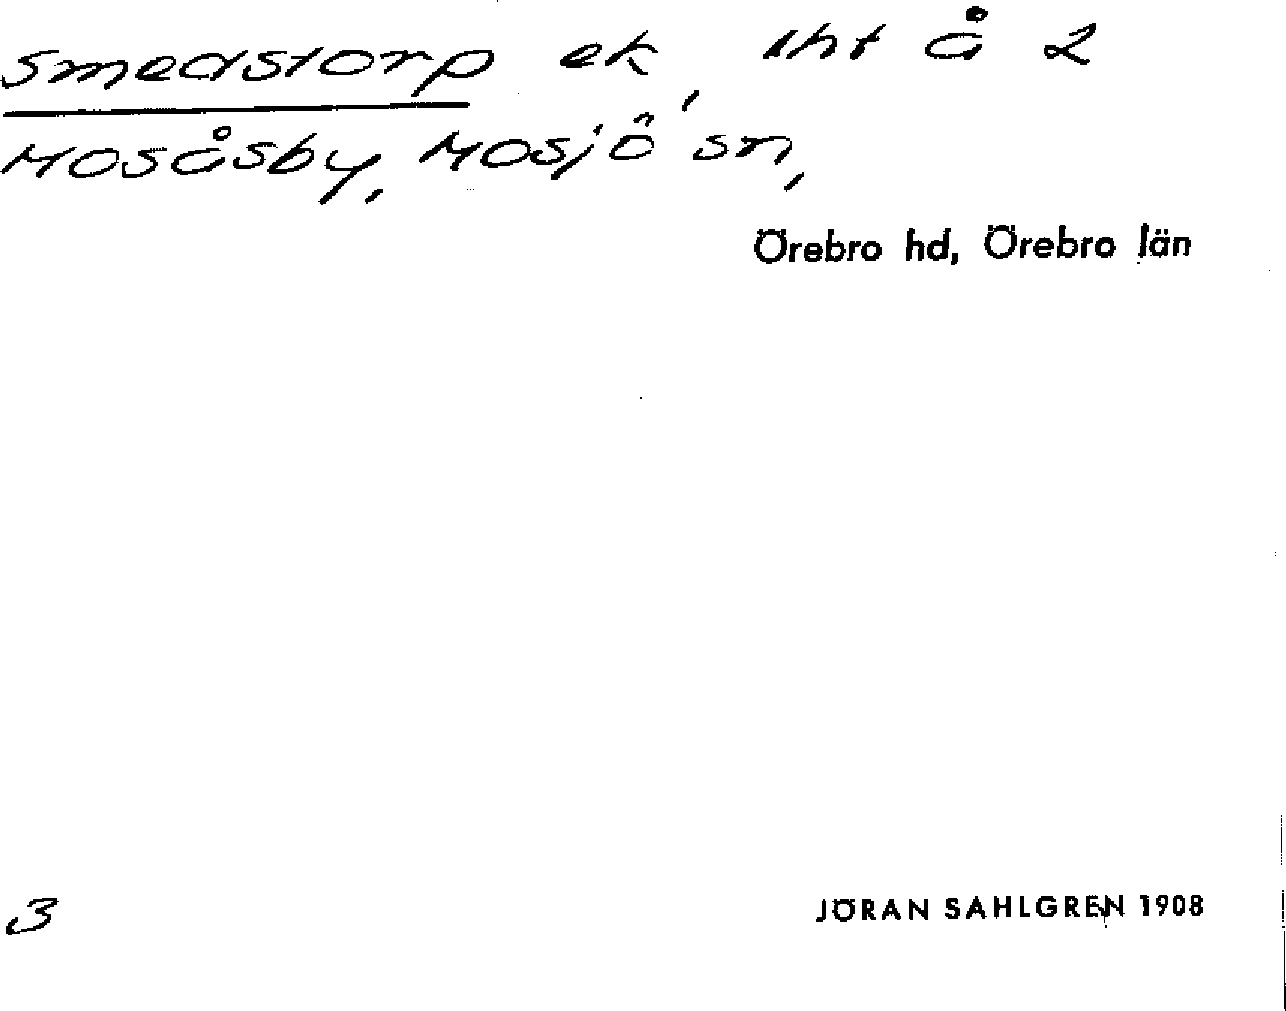 Smedstorp ek, lht å 2
Mosåsby, Mosjö sn,
Örebro hd, Örebro län
3
JÖRAN SAHLGREN 1908